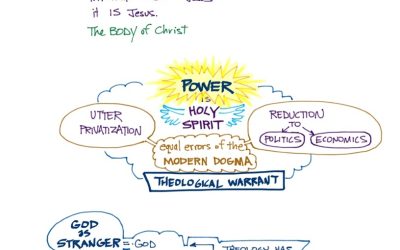 it IS Jesus.
The BODY of Christ
POWER
is
HOLY
SPIRIT
UTTER
PRIVATIZATION
REDUCTION
TO
POLITICS
ECONOMICS
equal errors of the
MODERN DOGMA
THEOLOGICAL WARRANT
GOD
as
STRANGER = GOD
THEOLOGY HAS